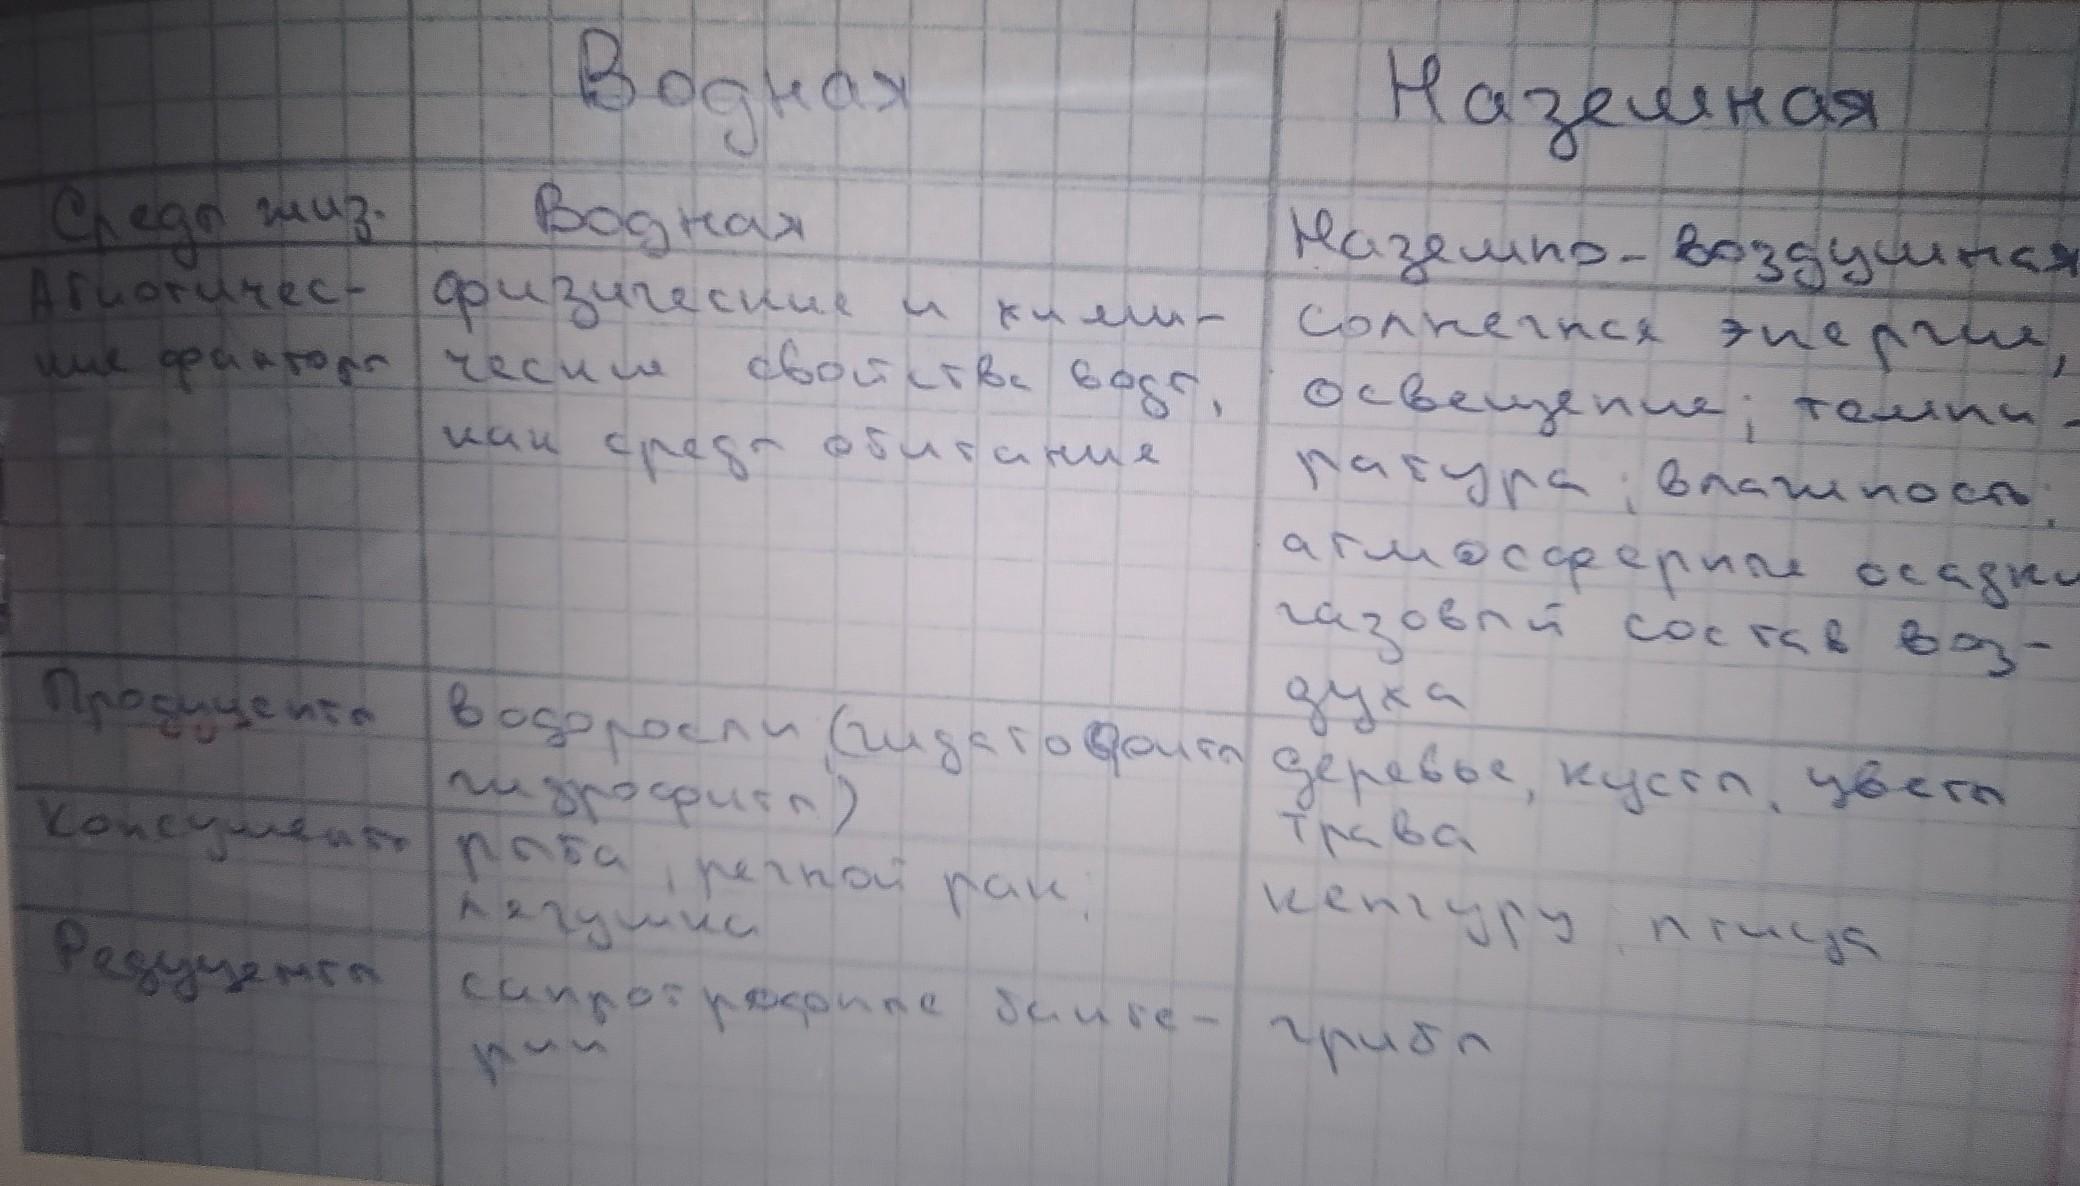 Водная
Наземная
Среда жиз.
Водная
Наземно-воздушная
Абиотичес-
кие факторы
физические и хими-
ческие свойства воды,
как среды обитание
солнечная энергия,
освещение; темпи-
ратура; влажность;
атмосферные осадки
газовый состав воз-
духа
Продуценты
водоросли, (гидатофиты
гидрофиты)
деревья, кусты, цветы
трава
Консументы
рыба, речной рак,
лягушка
кенгуру, птица
Редуценты
сапротрофные бакте-
рии
грибы